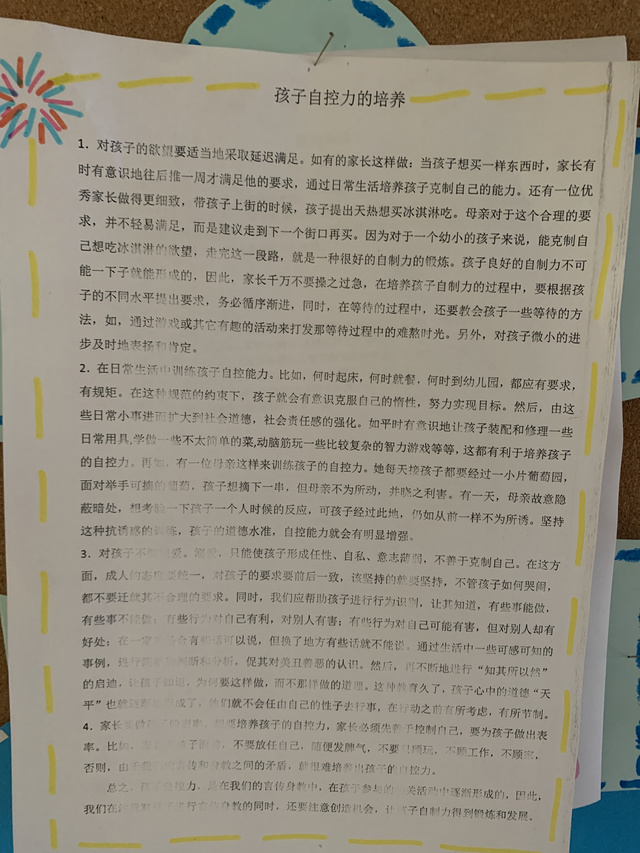 孩子自控力的培养
1．对孩子的欲望要适当地采取延迟满足。如有的家长这样做：当孩子想买一样东西时，家长有
时有意识地往后推一周才满足他的要求，通过日常生活培养孩子克制自己的能力。还有一位优
秀家长做得更细致，带孩子上街的时候，孩子提出天热想买冰淇淋吃。母亲对于这个合理的要
求，并不轻易满足，而是建议走到下一个街口再买。因为对于一个幼小的孩子来说，能克制自
己想吃冰淇淋的欲望，走完这一段路，就是一种很好的自制力的锻炼。孩子良好的自制力不可
能一下子就能形成的，因此，家长千万不要操之过急，在培养孩子自制力的过程中，要根据孩
子的不同水平提出要求，务必循序渐进，同时，在等待的过程中，还要教会孩子一些等待的方
法，如，通过游戏或其它有趣的活动来打发那等待过程中的难熬时光。另外，对孩子微小的进
步及时地表扬和肯定。
2．在日常生活中训练孩子自控能力。比如，何时起床，何时就餐，何时到幼儿园，都应有要求，
有规矩。在这种规范的约束下，孩子就会有意识克服自己的惰性，努力实现目标。然后，由这
些日常小事进而扩大到社会道德，社会责任感的强化。如平时有意识地让孩子装配和修理一些
日常用具,学做一些不太简单的菜,动脑筋玩一些比较复杂的智力游戏等等，这都有利于培养孩子
的自控力。再如，有一位母亲这样来训练孩子的自控力。她每天接孩子都要经过一小片葡萄园，
面对举手可摘的葡萄，孩子想摘下一串，但母亲不为所动，并晓之利害。有一天，母亲故意隐
蔽暗处，想考验一下孩子一个人时候的反应，可孩子经过此地，仍如从前一样不为所诱。坚持
这种抗诱惑的训练，孩子的道德水准，自控能力就会有明显增强。
3．对孩子不 爱。 ，只能使孩子形成任性、自私、意志薄弱，不善于克制自己。在这方
面，成人的态度要统一，对孩子的要求要前后一致，该坚持的就要坚持，不管孩子如何哭闹，
都不要迁就其不合理的要求。同时，我们应帮助孩子进行行为识别，让其知道，有些事能做，
有些事不能做；有些行为对自己有利，对别人有害；有些行为对自己可能有害，但对别人却有
好处；在一 合有些话可以说，但换了地方有些话就不能说。通过生活中一些可感可知的
事例，进行 判断和分析，促其对美丑善恶的认识。然后，再不断地进行“知其所以然”
的启迪，让孩子知道，为何要这样做，而不那样做的道理。这种教育久了，孩子心中的道德“天
平”也就 成了，他们就不会任由自己的性子去行事，在行动之前有所考虑，有所节制。
4．家长要做 的表率。想要培养孩子的自控力，家长必须先善于控制自己，要为孩子做出表
率。比如， 孩子 ，不要放任自己，随便发脾气，不要只顾玩，不顾工作，不顾家，
否则，由于 言传和身教之间的矛盾，就很难培养出孩子的自控力。
总之，孩子自控力，是在我们的言传身教中，在孩子参与的 关活动中逐渐形成的，因此，
我们在 孩子进行言传身教的同时，还要注意创造机会，让孩子自制力得到锻炼和发展。